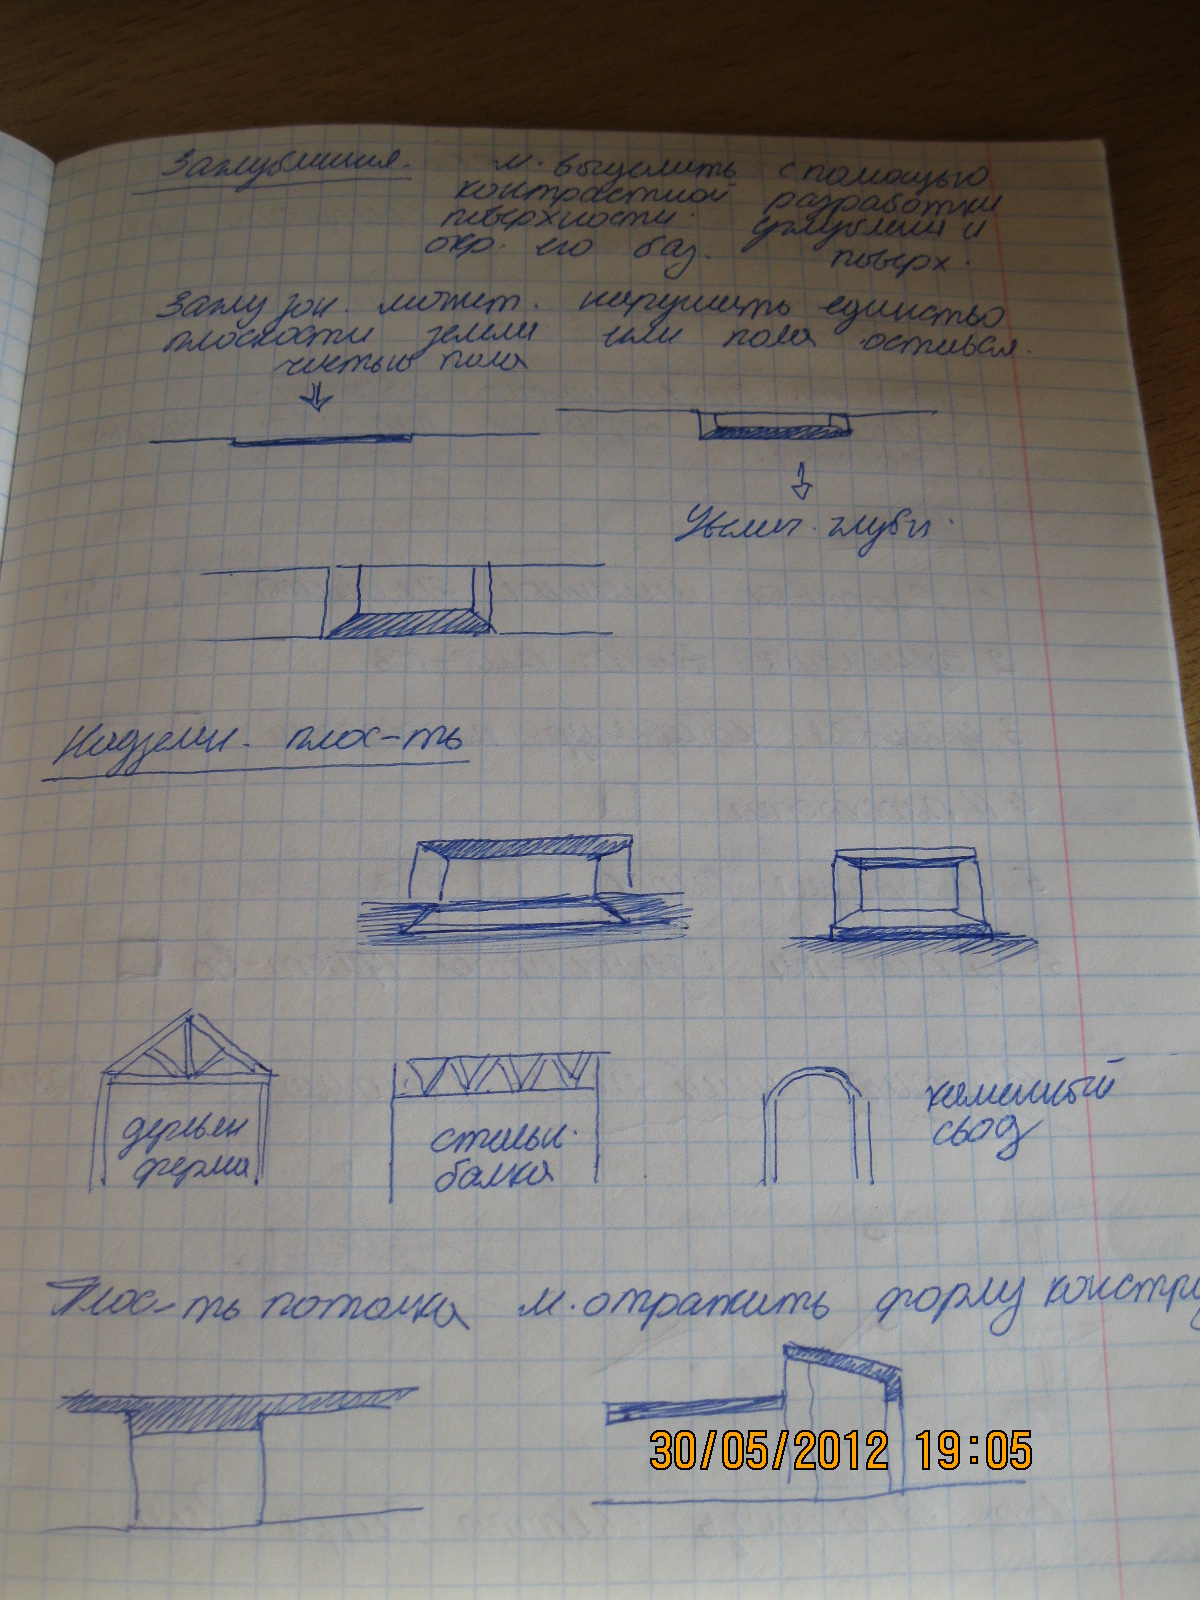 Заглубления.
м. выделить с помощью
контрастной разработки
поверхности. углублений и
окр. его баз. поверх.
Заглу зон. может. нарушать единство
плоскости земли или пола остаься.
частью пола
Увелич. глуби.
Надземн. плос-ть
деревян
ферма
стальн.
балка
каменный
свод
Плос-ть потолка м. отражить форму констру
30/05/2012 19:05